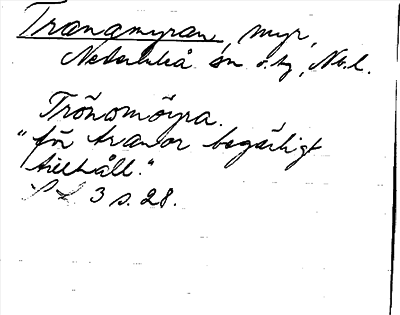 Tranamyran, myr,
Nederluleå sn o. tg, Nb. l.
Trönomöyra.
"för tranor begärligt
tillhåll."
3 s. 28.